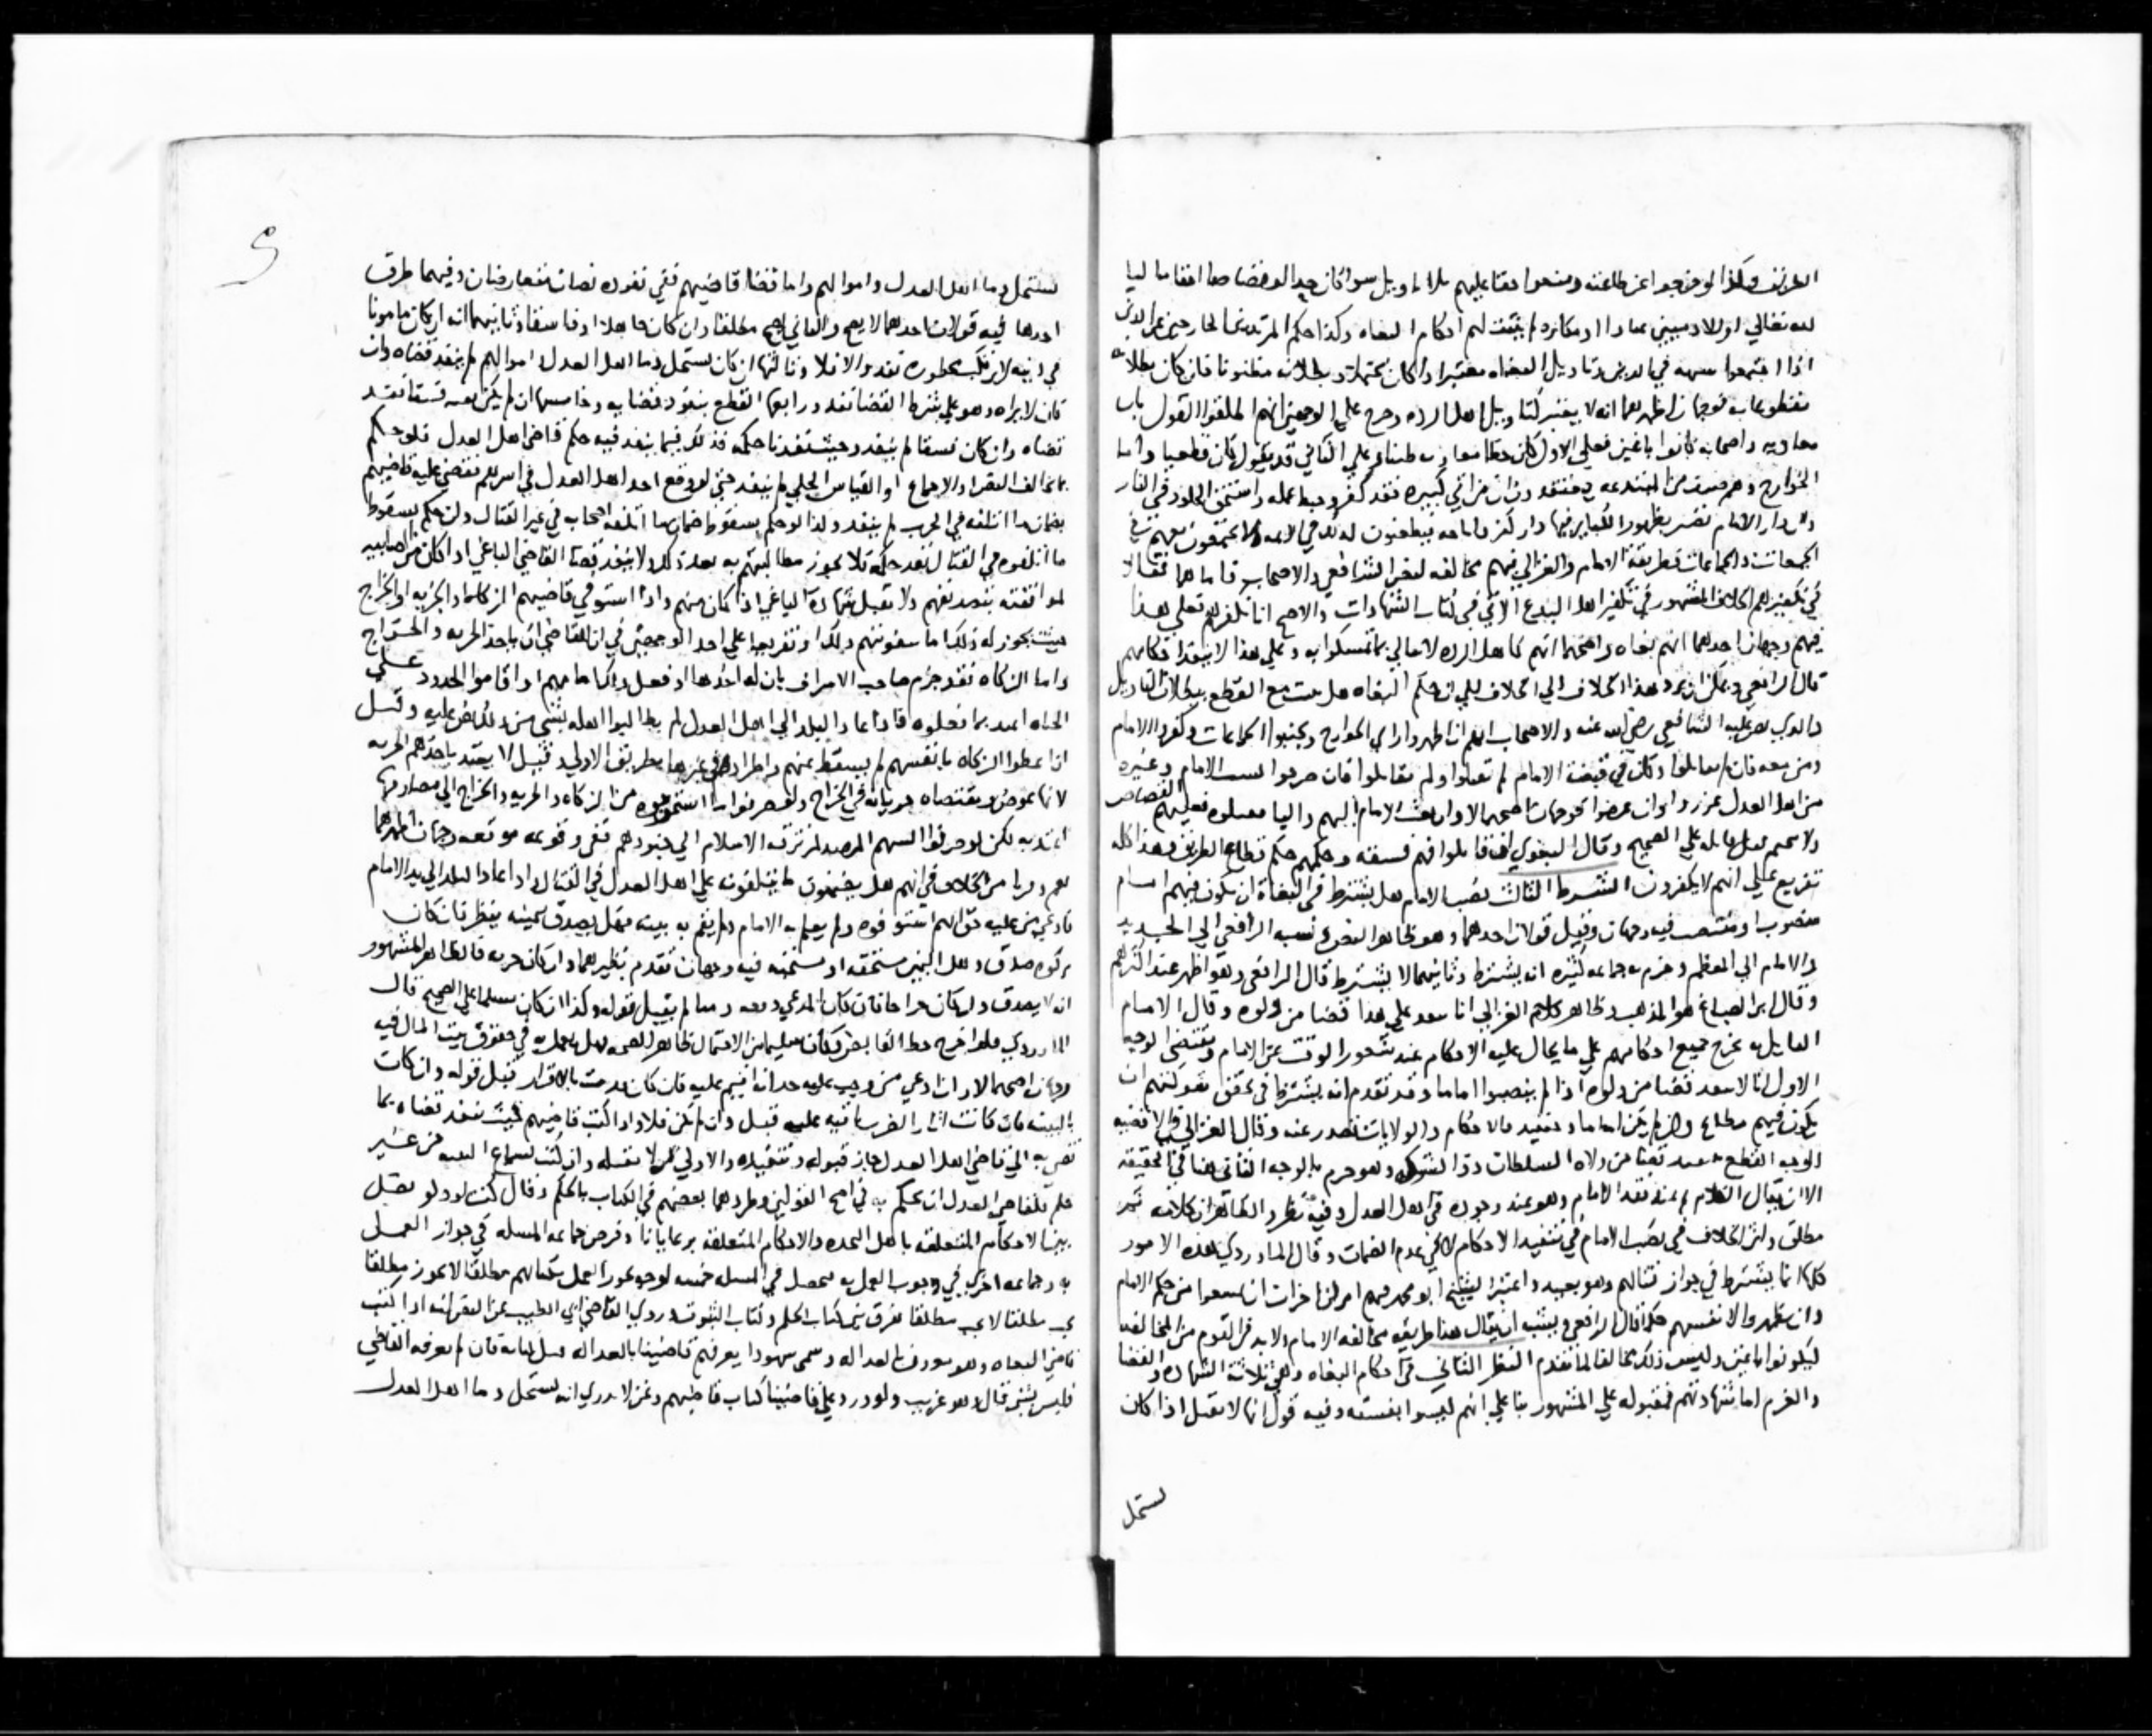 الطريق وكذا لو خرجوا عن طاعته ومنعوا حقا عليهم بلا تاويل سوا كان حدا او قصاصا او مالا
لله تعالى او للادميين عنادا او مكابرة لم يثبت لهم احكام البغاه وكذا حكم المرتدين الخارجين عن الدين
اذا اجتمعوا في الدين وتاويل البغاه معتبر اذا كان بطلانه مظنونا فان كان بطلانه
مقطوعا به فوجهان اظهرهما انه لا يعتبر كتاويل اهل الرده وخرج على الوجهين انهم اطلقوا القول بان
معاويه واصحابه كانوا باغين فعلى الاول على الثاني قد يقول كان قطعيا واما
الخوارج وهم صنف من المبتدعه يعتقد ان من اتى كبيره فقد كفر وحبط عمله واستحق الخلود في النار
وان دار الامام تصير بظهور الكباير فيها دار كفر فيطعنون لذلك في الايمه ولا يجتمعون معهم في
الجمعات والجماعات وطريقة الامام والغزالي فيهم مخالفه لنص الشافعي والاصحاب فاما هما فقالا
في تكفيرهم الخلاف المشهور في تكفير اهل البدع الاتي في كتاب الشهادات والاصح انا نكفرهم فعلى هذا
فيهم وجهان احدهما انهم بغاه واصحهما انهم كاهل الرده لا نبالي بما تمسكوا به وعلى هذا لا ينفذ احكامهم
قال الرافعي ويمكن ان يرد هذا الخلاف الى الخلاف في ان حكم البغاه هل يثبت مع القطع ببطلان التاويل
والذي نص عليه الشافعي رضي الله عنه والاصحاب انهم ان اظهروا راي الخوارج وتجنبوا الجماعات وكفروا الامام
ومن معه فان لم يقاتلوا وكان في قبضة الامام لم يقتلوا ولم يقاتلوا فان صرحوا بسب الامام وغيره
من اهل العدل عزروا وان عرضوا فوجهان اصحهما لا ولو بعث الامام اليهم واليا فقتلوه فعليهم القصاص
ولا يتحتم قتل قاتله على الصحيح وقال البغوي ان قاتلوا فهم فسقه وحكمهم حكم قطاع الطريق وهذا كله
تفريع على انهم لا يكفرون الشرط الثالث نصب الامام هل يشترط في البغاة ان يكون فيهم امام
منصوب او منتصب فيه وجهان وقيل قولان احدهما وهو ظاهر النص ونسبه الرافعي الى الجديد
والامام الى المعظم وجزم به جماعه كثيره انه يشترط وثانيهما لا يشترط قال الرافعي وهو اظهر عند اكثرهم
وقال ابن الصباغ هو المذهب وظاهر كلام الغزالي انا على هذا قضا من ولوه وقال الامام
القايل به يخرج جميع احكامهم على ما يحال عليه الاحكام عند شغور الوقت عن الامام ومقتضى الوجه
الاول انا لا ننفذ قضا من ولوه اذا لم ينصبوا اماما وقد تقدم انه يشترط في تحقق شوكتهم ان
يكون فيهم مطاع وان لم يكن اماما والاحكام والولايات تصدر عنه وقال الغزالي
الوجه القطع بتنفيذ قضا من ولاه السلطان ذو الشوكه وهو جزم بالوجه الثاني هنا في الحقيقه
الا ان يقال الكلام عند فقد الامام وهو عند وجوده في اهل العدل وفيه نظر والظاهر ان كلامه ثم
مطلق واثر الخلاف في نصب الامام في تنفيذ الاحكام لا في عدم الضمان وقال الماوردي هذه الامور
كلها انما يشترط في جواز قتالهم وهو بعيد واعتبر الشيخ ابو محمد فيهم امرين اخرين ان يمتنعوا من حكم الامام
وان يظهروا لانفسهم حكما قال الرافعي ويشبه ان يقال هذا طريقه مخالفه الامام ولا بد في القوم من المخالفه
ليكونوا باغين وليس ذلك مخالفا لما تقدم النظر الثاني في احكام البغاه وهي ثلاثة الشهاده والقضا
والغرم اما شهادتهم فمقبوله على المشهور بنا على انهم ليسوا بفسقه وفيه قول انها لا تقبل اذا كان
يستحل
يستحل دما اهل العدل واموالهم واما قضا قاضيهم ففي نفوذه نصان متعارضان وفيهما طرق
احدها فيه قولان احدهما لا يصح والثاني يصح مطلقا وان كان جاهلا او فاسقا وثانيهما انه ان كان مامونا
في دينه لا يرتكب محظوره نفذ والا فلا وثالثها ان كان يستحل دما اهل العدل واموالهم لم ينفذ قضاه وان
كان لا يراه وهو على شرط القضا نفذ ورابعها القطع بنفوذ قضايه وخامسها ان لم يكن بغيه فسقا نفذ
قضاه وان كان فسقا لم ينفذ وحيث نفذنا حكمه فذلك فيما ينفذ فيه حكم قاضي اهل العدل فلو حكم
بما يخالف النص او الاجماع او القياس الجلي لم ينفذ حتى لو وقع احد اهل العدل في اسرهم فقضى عليه قاضيهم
بضمان ما اتلفه في الحرب لم ينفذ ولذا لو حكم بسقوط ضمان ما اتلفه اصحابه في غير القتال وان حكم بسقوط
ما اتلفوه في القتال نفذ حكمه فلا يجوز مطالبتهم به بعد ذلك ولا ينفذ قضا القاضي الباغي اذا كان من الخطابيه
لموافقته بتصديقهم ولا تقبل شهادة الباغي اذا كان منهم واذا استوفى قاضيهم الزكاه او الجزيه او الخراج
حيث يجوز له ذلك اما وتفريعا على احد الوجهين في ان للقاضي ان ياخذ الجزيه والخراج
واما الزكاه فقد جزم صاحب الاسراف بان له اخذها اذ فصل واذا اقاموا الحدود على
الجناه اعتد بما فعلوه فاذا عاد البلد الى اهل العدل لم يطالبوا اهله بشي من ذلك نص عليه وقيل
اذا اعطوا الزكاه بانفسهم لم يسقط عنهم بطريق الاولى وقيل لا يعتد باخذهم الجزيه
لانها عوض ومقتضاه جريانه في الخراج ولو صرفوا ما استحقوه من الزكاه والجزيه والخراج الى مصارفها
اعتد به لكن لو صرفوا السهم المرصد لمرتزقة الاسلام الى جنودهم ففي وقوعه موقعه وجهان اظهرهما
نعم من الخلاف في انهم هل يضمنون ما يتلفونه على اهل العدل في القتال واذا عاد البلد الى يد الامام
فادعى من عليه حق انهم استوفوه ولم يعلم به الامام ولم يقم به بينه فهل يصدق بيمينه ينظر فان كان
زكوه صدق وهل اليمين مستحقه او مستحبه فيه وجهان تقدم نظيرهما وان كان جزيه فالظاهر المشهور
انه لا يصدق وان كان خراجا فان كان المدعي ذميا لم يقبل قوله وكذا ان كان مسلما على الصحيح قال
الماوردي
وجهان اصحهما لا وان ادعى من وجب عليه حد انه اقيم عليه فان كان يثبت بالاقرار قبل قوله وان كان
بالبينه فان كانت اثار الضرب باقيه عليه قبل وان لم تكن فلا واذا كتب قاضيهم بحيث ينفذ قضاه بما
قضى به الى قاضي اهل العدل جاز قبوله وتنفيذه والاولى ان لا نقبله وان كتب بسماع البينه من غير
حكم فلقاضي العدل ان يحكم به في اصح القولين وطردهما بعضهم في الكتاب بالحكم
الاحكام المتعلقه باهل النجده والاحكام المتعلقه برعايانا وفرض جماعه المسله في جواز العمل
به وجماعه اخرى في وجوب العمل به فيحصل في المسله خمسه اوجه يجوز العمل بكتابهم مطلقا لا يجوز مطلقا
يجب مطلقا لا يجب مطلقا يفرق بين كتاب الحكم وكتاب الثبوت وروي القاضي ابي الطيب عن النص انه اذا كتب
قاضي البغاه وهو معروف بالعداله وسمى شهودا يعرفهم قاضينا بالعداله قبل كتابه فان لم يعرفه القاضي
فليس بشي قال وهو غريب ولو ورد على قاضينا كتاب قاضيهم ونحن لا ندري انه يستحل دما اهل العدل